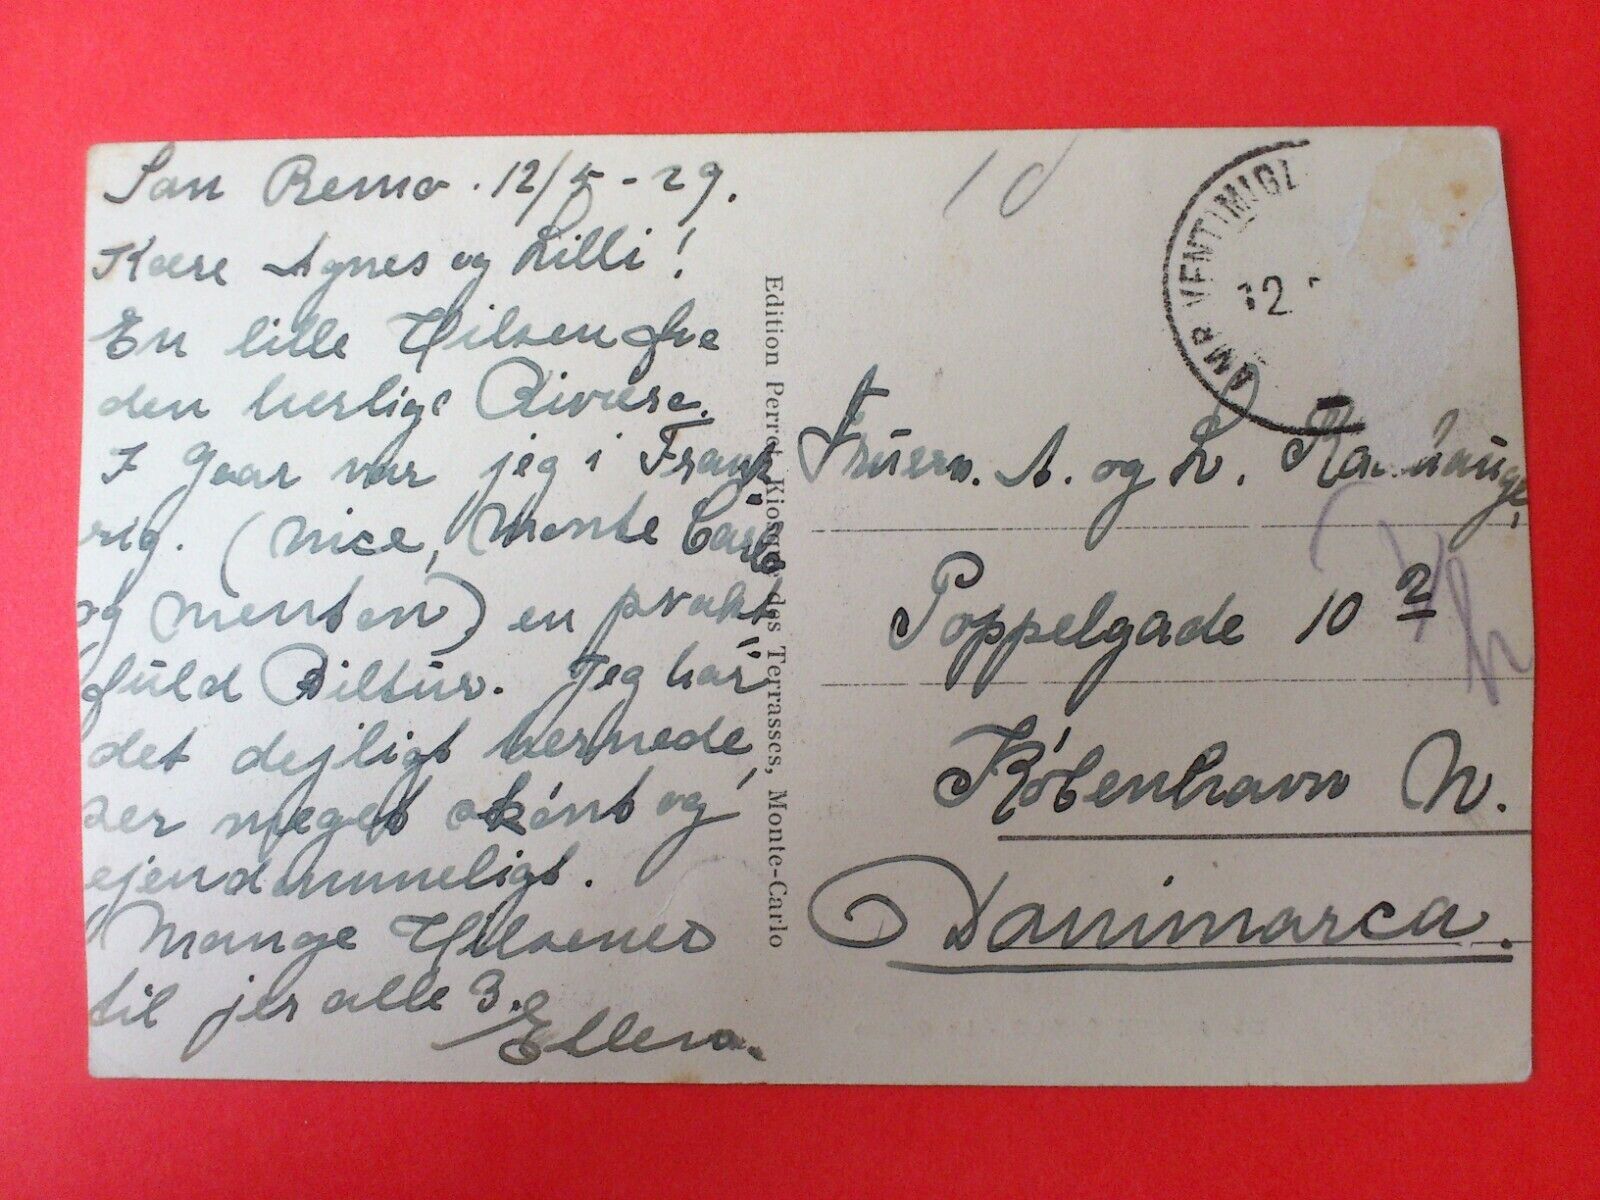 San Remo. 12/5-29.
Kære Agnes og Lilli!
En lille Hilsen fra
den herlige Riviera.
I Gaar var jeg i Frank
rig. (Nice, Monte Carlo
og Menton) en prakt
fuld Biltur. Jeg har
det dejligt hernede,
ser meget skønt og
ejendommeligt.
Mange Hilsener
til jer alle 3.
Ellen.
Edition Perret, Kiosque des Terrasses, Monte-Carlo
10
AMB VENTIMIGL
12
Fruern. A. og L.
Poppelgade 10 2
København N.
Danimarca.